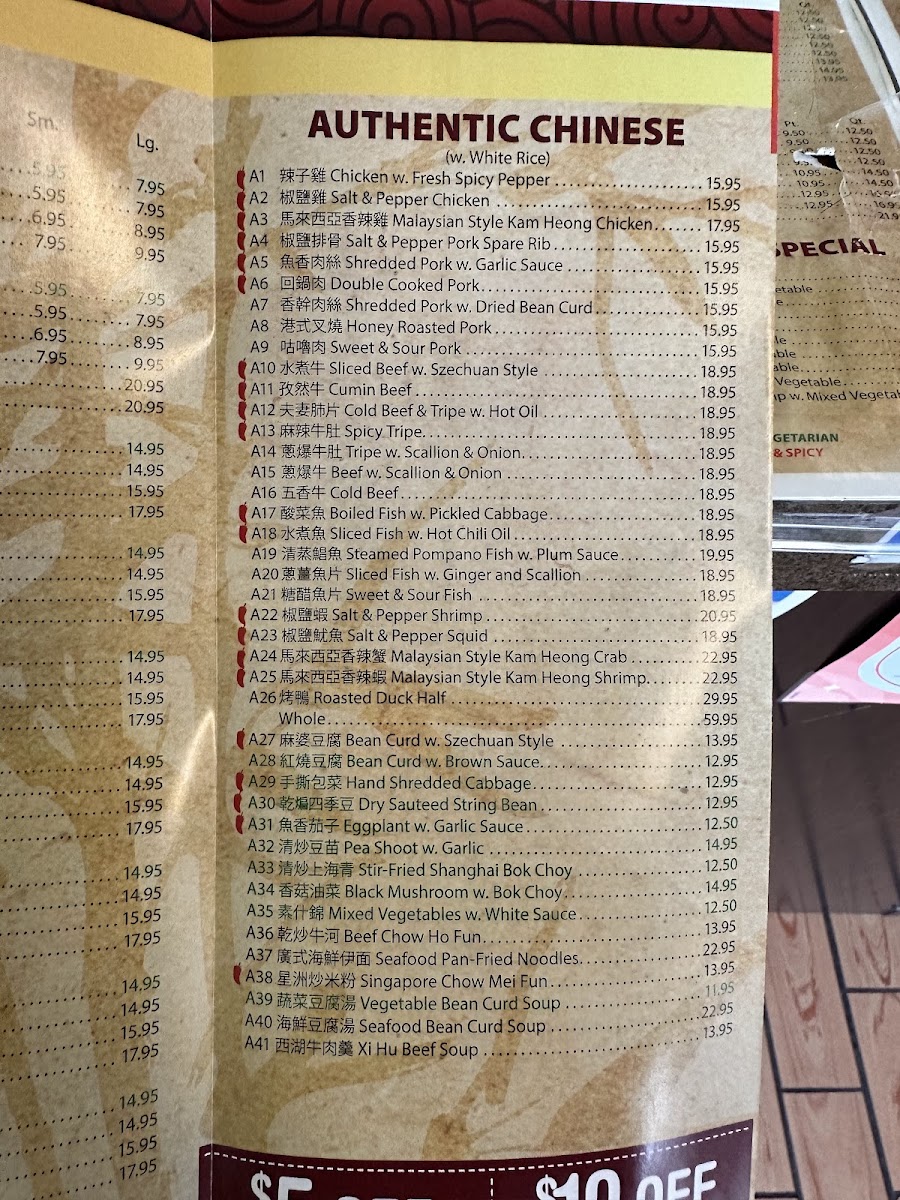 Sm.
Lg.
5.95 7.95
5.95 7.95
6.95 8.95
7.95 9.95
5.95 7.95
5.95 7.95
6.95 8.95
7.95 9.95
20.95
20.95
14.95
14.95
15.95
17.95
14.95
14.95
15.95
17.95
14.95
14.95
15.95
17.95
14.95
14.95
15.95
17.95
14.95
14.95
15.95
17.95
14.95
14.95
15.95
17.95
14.95
14.95
15.95
17.95
AUTHENTIC CHINESE
(w. White Rice)
A1 辣子雞 Chicken w. Fresh Spicy Pepper 15.95
A2 椒鹽雞 Salt & Pepper Chicken 15.95
A3 馬來西亞香辣雞 Malaysian Style Kam Heong Chicken 17.95
A4 椒鹽排骨 Salt & Pepper Pork Spare Rib 15.95
A5 魚香肉絲 Shredded Pork w. Garlic Sauce 15.95
A6 回鍋肉 Double Cooked Pork 15.95
A7 香幹肉絲 Shredded Pork w. Dried Bean Curd 15.95
A8 港式叉燒 Honey Roasted Pork 15.95
A9 咕嚕肉 Sweet & Sour Pork 15.95
A10 水煮牛 Sliced Beef w. Szechuan Style 18.95
A11 孜然牛 Cumin Beef 18.95
A12 夫妻肺片 Cold Beef & Tripe w. Hot Oil 18.95
A13 麻辣牛肚 Spicy Tripe 18.95
A14 蔥爆牛肚 Tripe w. Scallion & Onion 18.95
A15 蔥爆牛 Beef w. Scallion & Onion 18.95
A16 五香牛 Cold Beef 18.95
A17 酸菜魚 Boiled Fish w. Pickled Cabbage 18.95
A18 水煮魚 Sliced Fish w. Hot Chili Oil 18.95
A19 清蒸鯧魚 Steamed Pompano Fish w. Plum Sauce 19.95
A20 蔥薑魚片 Sliced Fish w. Ginger and Scallion 18.95
A21 糖醋魚片 Sweet & Sour Fish 18.95
A22 椒鹽蝦 Salt & Pepper Shrimp 20.95
A23 椒鹽魷魚 Salt & Pepper Squid 18.95
A24 馬來西亞香辣蟹 Malaysian Style Kam Heong Crab 22.95
A25 馬來西亞香辣蝦 Malaysian Style Kam Heong Shrimp 22.95
A26 烤鴨 Roasted Duck Half 29.95
Whole 59.95
A27 麻婆豆腐 Bean Curd w. Szechuan Style 13.95
A28 紅燒豆腐 Bean Curd w. Brown Sauce 12.95
A29 手撕包菜 Hand Shredded Cabbage 12.95
A30 乾煸四季豆 Dry Sauteed String Bean 12.95
A31 魚香茄子 Eggplant w. Garlic Sauce 12.50
A32 清炒豆苗 Pea Shoot w. Garlic 14.95
A33 清炒上海青 Stir-Fried Shanghai Bok Choy 12.50
A34 香菇油菜 Black Mushroom w. Bok Choy 14.95
A35 素什錦 Mixed Vegetables w. White Sauce 12.50
A36 乾炒牛河 Beef Chow Ho Fun 13.95
A37 廣式海鮮伊面 Seafood Pan-Fried Noodles 22.95
A38 星洲炒米粉 Singapore Chow Mei Fun 13.95
A39 蔬菜豆腐湯 Vegetable Bean Curd Soup 11.95
A40 海鮮豆腐湯 Seafood Bean Curd Soup 22.95
A41 西湖牛肉羹 Xi Hu Beef Soup 13.95
$5 OFF
$10 OFF
Qt.
12.50
12.50
12.50
12.50
13.95
14.95
13.95
Pt. Qt.
9.50 12.50
9.50 12.50
12.50
10.95 14.50
10.95 14.50
12.95 16.95
SPECIAL
Vegetable
w. Mixed
GETARIAN
& SPICY